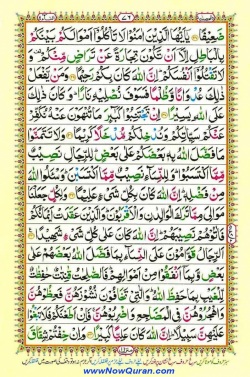 ٧٦
ضَعِيْفًا ۝ يٰۤاَيُّهَا الَّذِيْنَ اٰمَنُوْا لَا تَاْكُلُوْۤا اَمْوَالَكُمْ بَيْنَكُمْ
بِالْبَاطِلِ اِلَّاۤ اَنْ تَكُوْنَ تِجَارَةً عَنْ تَرَاضٍ مِّنْكُمْ وَ
لَا تَقْتُلُوْۤا اَنْفُسَكُمْ اِنَّ اللّٰهَ كَانَ بِكُمْ رَحِيْمًا ۝ وَمَنْ يَّفْعَلْ
ذٰلِكَ عُدْوَانًا وَّظُلْمًا فَسَوْفَ نُصْلِيْهِ نَارًا وَكَانَ ذٰلِكَ عَلَى
اللّٰهِ يَسِيْرًا ۝ اِنْ تَجْتَنِبُوْا كَبَآئِرَ مَا تُنْهَوْنَ عَنْهُ نُكَفِّرْ
عَنْكُمْ سَيِّاٰتِكُمْ وَنُدْخِلْكُمْ مُّدْخَلًا كَرِيْمًا ۝ وَلَا تَتَمَنَّوْا
مَا فَضَّلَ اللّٰهُ بِهٖ بَعْضَكُمْ عَلٰى بَعْضٍ لِلرِّجَالِ نَصِيْبٌ
مِّمَّا اكْتَسَبُوْا وَلِلنِّسَآءِ نَصِيْبٌ مِّمَّا اكْتَسَبْنَ وَسْـَٔلُوا اللّٰهَ
مِنْ فَضْلِهٖ اِنَّ اللّٰهَ كَانَ بِكُلِّ شَيْءٍ عَلِيْمًا ۝ وَلِكُلٍّ جَعَلْنَا
مَوَالِيَ مِمَّا تَرَكَ الْوَالِدٰنِ وَالْاَقْرَبُوْنَ وَالَّذِيْنَ عَقَدَتْ اَيْمَانُكُمْ
فَاٰتُوْهُمْ نَصِيْبَهُمْ اِنَّ اللّٰهَ كَانَ عَلٰى كُلِّ شَيْءٍ شَهِيْدًا ۝
اَلرِّجَالُ قَوّٰمُوْنَ عَلَى النِّسَآءِ بِمَا فَضَّلَ اللّٰهُ بَعْضَهُمْ عَلٰى
بَعْضٍ وَّبِمَاۤ اَنْفَقُوْا مِنْ اَمْوَالِهِمْ فَالصّٰلِحٰتُ قٰنِتٰتٌ حٰفِظٰتٌ
لِّلْغَيْبِ بِمَا حَفِظَ اللّٰهُ وَالّٰتِيْ تَخَافُوْنَ نُشُوْزَهُنَّ فَعِظُوْهُنَّ
وَاهْجُرُوْهُنَّ فِي الْمَضَاجِعِ وَاضْرِبُوْهُنَّ فَاِنْ اَطَعْنَكُمْ فَلَا تَبْغُوْا
عَلَيْهِنَّ سَبِيْلًا اِنَّ اللّٰهَ كَانَ عَلِيًّا كَبِيْرًا ۝ وَاِنْ خِفْتُمْ شِقَاقَ
www.NowQuran.com